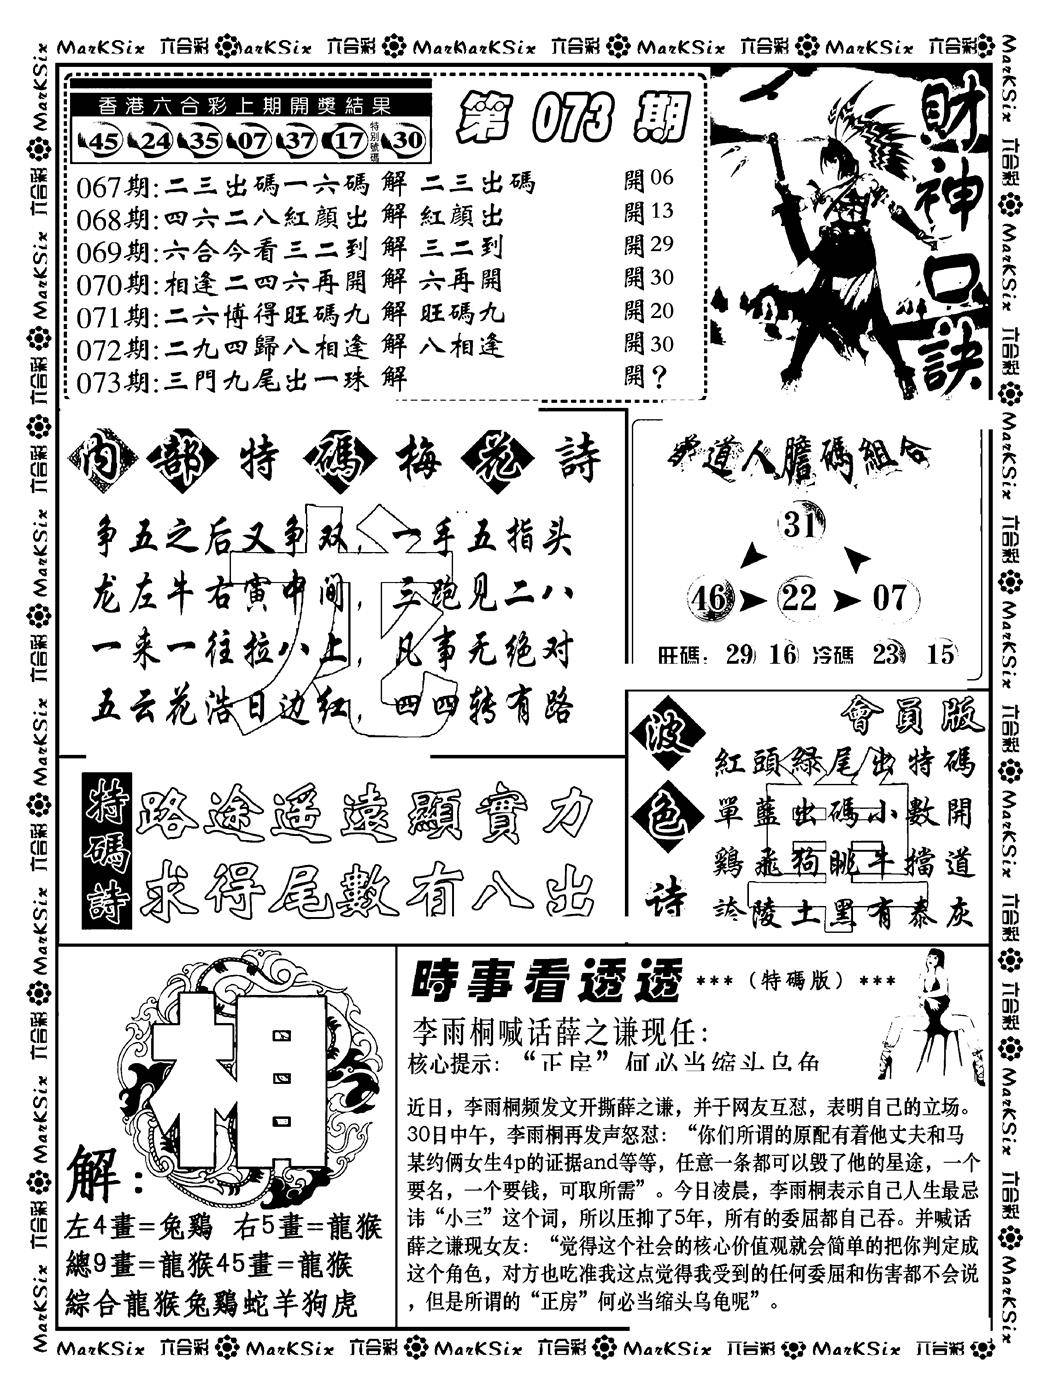 MarKSix 六合彩 MarKSix 六合彩 MarKSix 六合彩 MarKSix 六合彩 MarKSix 六合彩
香港六合彩上期開獎結果
45 24 35 07 37 17 特別號碼 30
第 073 期
067期:二三出碼一六碼 解 二三出碼 開06
068期:四六二八紅顔出 解 紅顔出 開13
069期:六合今看三二到 解 三二到 開29
070期:相逢二四六再開 解 六再開 開30
071期:二六博得旺碼九 解 旺碼九 開20
072期:二九四歸八相逢 解 八相逢 開30
073期:三門九尾出一珠 解 開?
財神口訣
內部特碼梅花詩
争五之后又争双，一手五指头
龙左牛右寅中间，三跑见二八
一来一往拉八上，凡事无绝对
五云花浩日边红，四四转有路
道人膽碼組合
31
46 22 07
旺碼: 29 16 冷碼 23 15
波色诗
會員版
紅頭綠尾出特碼
單藍出碼小數開
鷄飛狗眺牛擋道
詅陵土黑有泰灰
特碼詩
路途遥遠顯實力
求得尾數有八出
相
解:
左4畫=兔鷄 右5畫=龍猴
總9畫=龍猴45畫=龍猴
綜合龍猴兔鷄蛇羊狗虎
時事看透透 ***(特碼版)***
李雨桐喊话薛之谦现任:
核心提示: “正房”何必当缩头乌龟
近日，李雨桐频发文开撕薛之谦，并于网友互怼，表明自己的立场。
30日中午，李雨桐再发声怒怼: “你们所谓的原配有着他丈夫和马
某约俩女生4p的证据and等等，任意一条都可以毁了他的星途，一个
要名，一个要钱，可取所需”。今日凌晨，李雨桐表示自己人生最忌
讳“小三”这个词，所以压抑了5年，所有的委屈都自己吞。并喊话
薛之谦现女友: “觉得这个社会的核心价值观就会简单的把你判定成
这个角色，对方也吃准我这点觉得我受到的任何委屈和伤害都不会说
，但是所谓的“正房”何必当缩头乌龟呢”。
MarKSix 六合彩 MarKSix 六合彩 MarKSix 六合彩 MarKSix 六合彩 MarKSix 六合彩